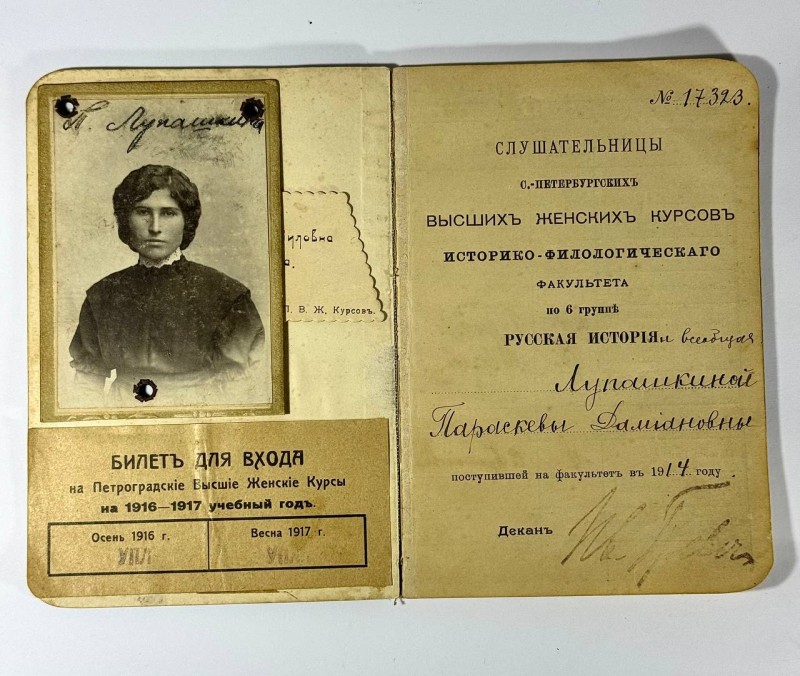 П. Лупашкина
иловна
а.
П. В. Ж. Курсовъ.
БИЛЕТЪ ДЛЯ ВХОДА
на Петроградскіе Высшіе Женскіе Курсы
на 1916—1917 учебный годъ.
Осень 1916 г.
Весна 1917 г.
№ 17323.
СЛУШАТЕЛЬНИЦЫ
С.-ПЕТЕРБУРГСКИХЪ
ВЫСШИХЪ ЖЕНСКИХЪ КУРСОВЪ
ИСТОРИКО-ФИЛОЛОГИЧЕСКАГО
ФАКУЛЬТЕТА
по 6 группѣ
РУССКАЯ ИСТОРІЯ и всеобщая
Лупашкиной
Параскевы Даміановны
поступившей на факультетъ въ 1914 году.
Деканъ